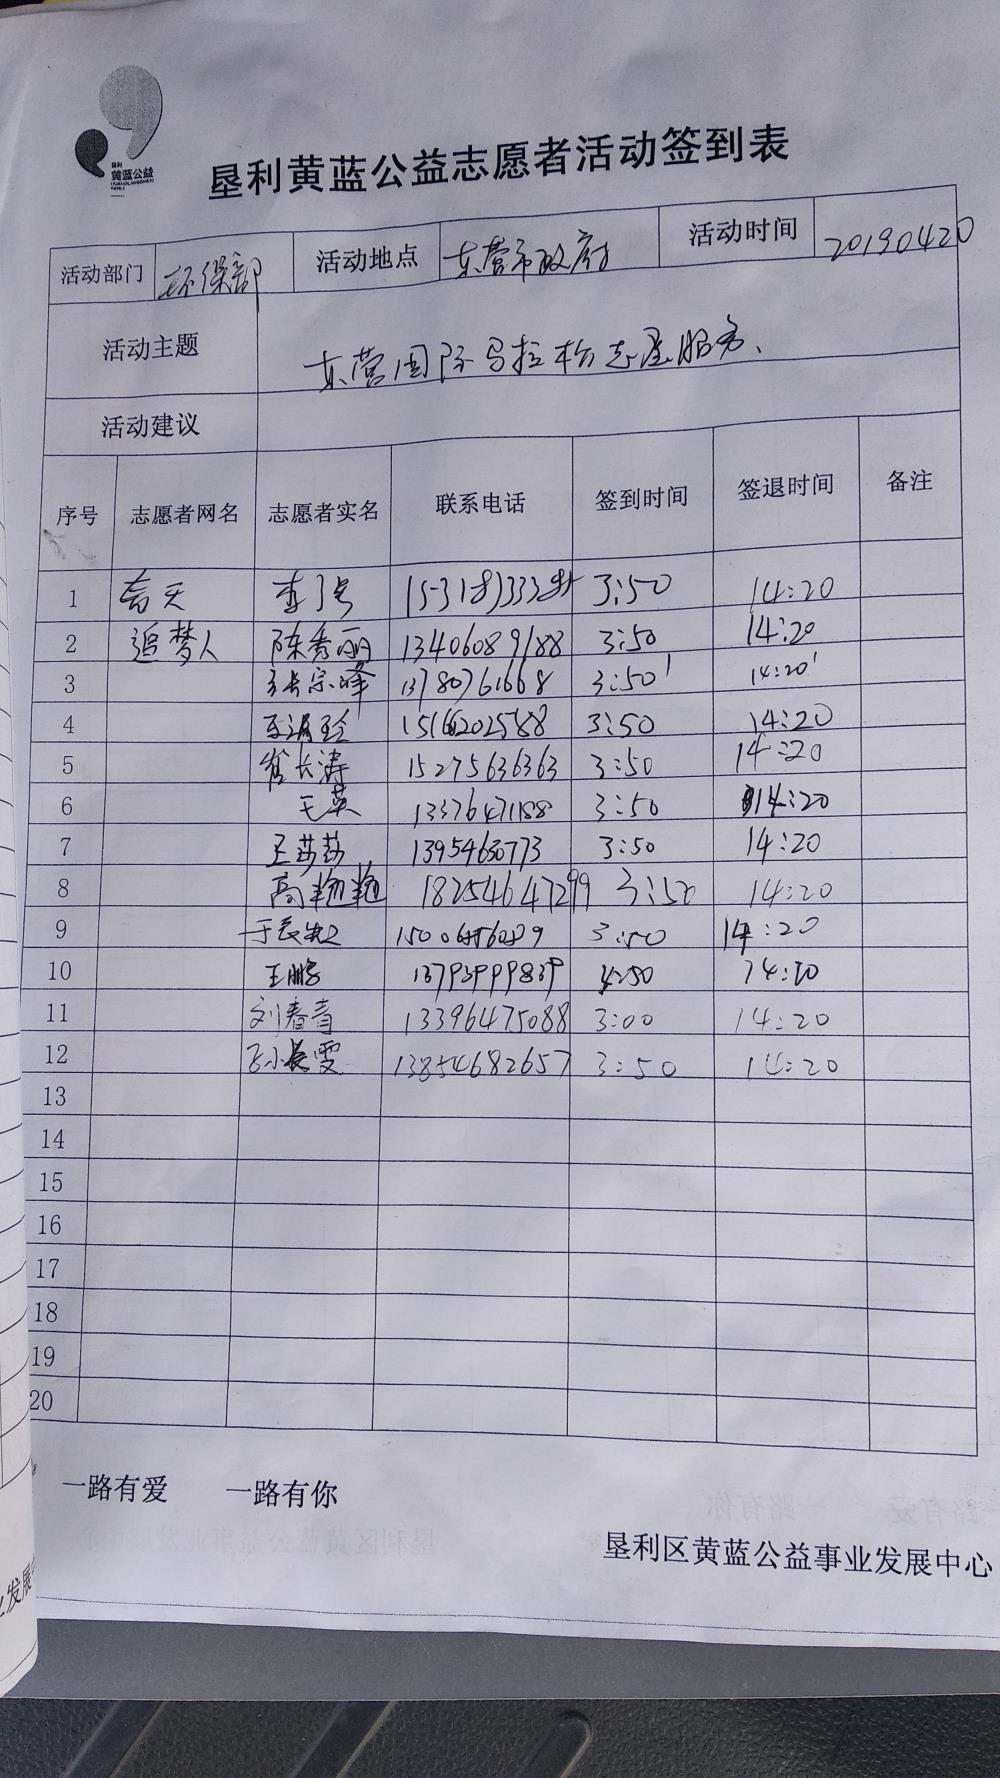 垦利
黄蓝公益
垦利黄蓝公益志愿者活动签到表
活动部门 环保部 活动地点 东营市政府 活动时间 20190420
活动主题 东营国际马拉松志愿服务、
活动建议
序号 志愿者网名 志愿者实名 联系电话 签到时间 签退时间 备注
1 3:50 14:20
2 追梦人 陈秀丽 13406089188 3:50 14:20
3 张宗峰 13780761668 3:50' 14:20'
4 15166202588 3:50 14:20
5 崔长涛 15275636363 3:50 14:20
6 王英 13376471188 3:50 14:20
7 王莎莎 13954630773 3:50 14:20
8 高艳艳 18254647299 3:50 14:20
9 3:50 14:20
10 王鹏 13793999839 14:20
11 刘春青 13396475088 3:00 14:20
12 13854682657 3:50 14:20
13
14
15
16
17
18
19
20
一路有爱 一路有你
垦利区黄蓝公益事业发展中心